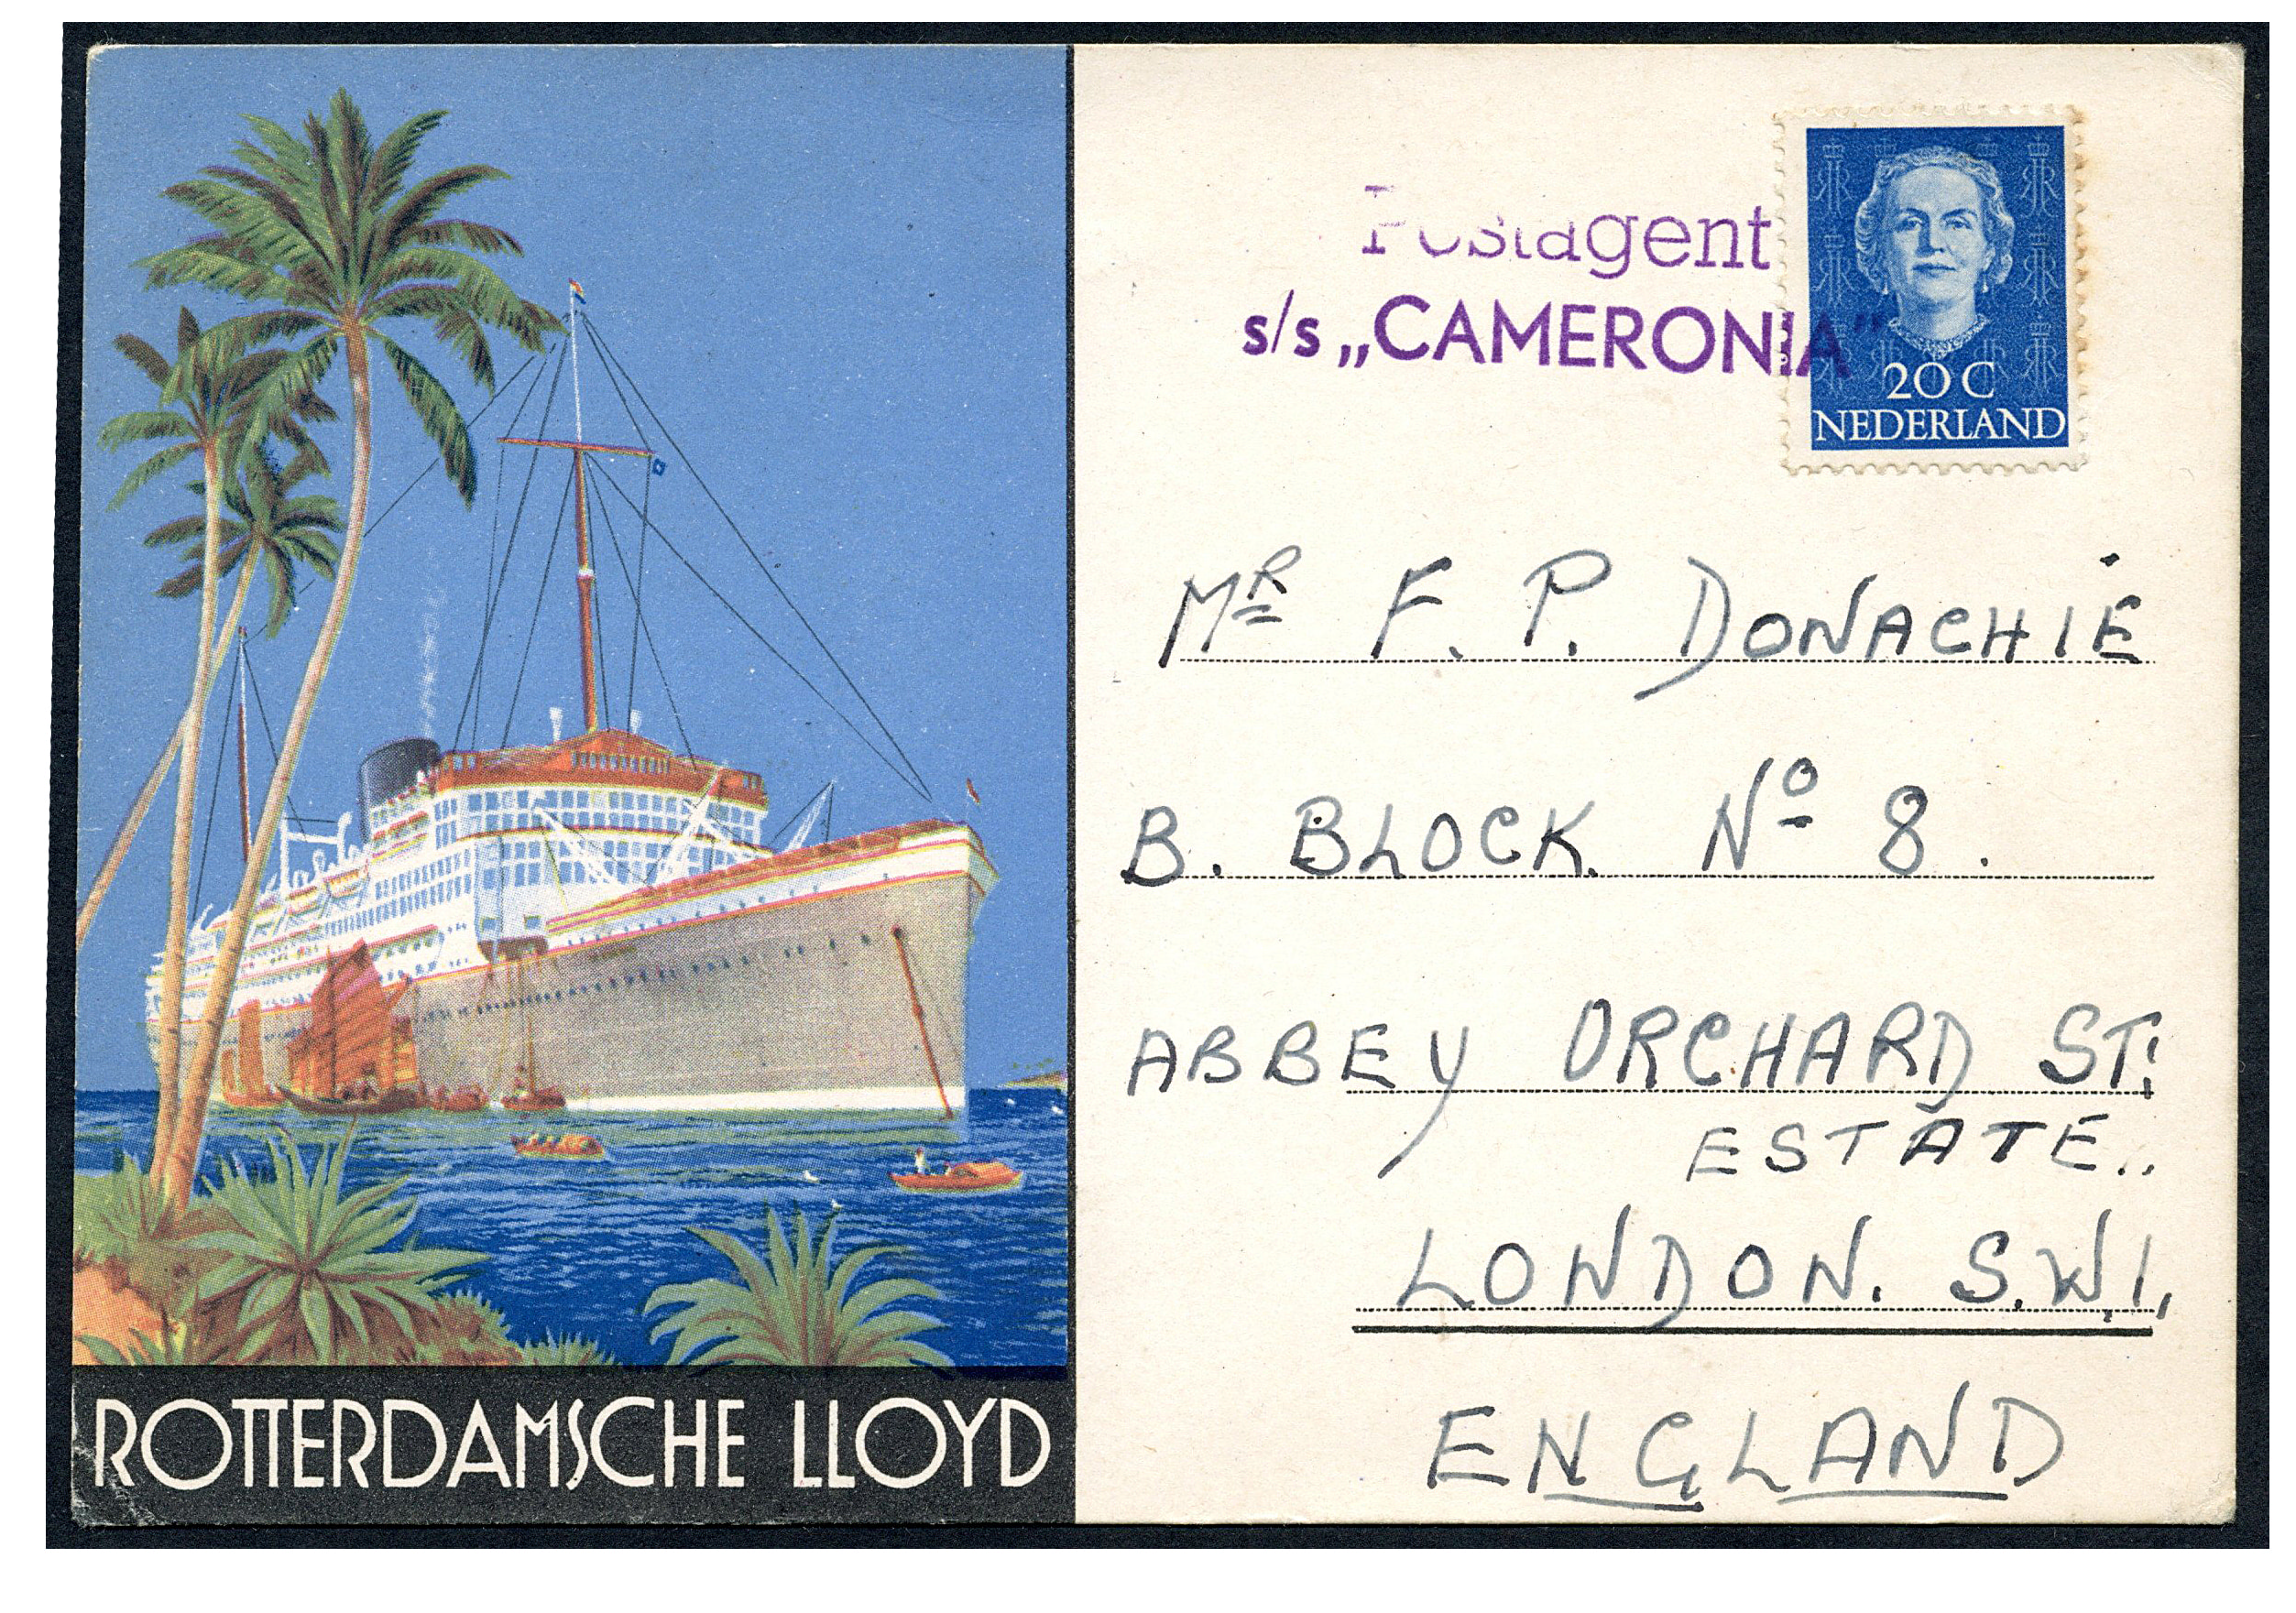 Postagent
s/s „CAMERONIA”
20 C
NEDERLAND
MR F. P. DONACHIE
B. BLOCK No 8.
ABBEY ORCHARD ST:
ESTATE..
LONDON. S.W.1.
ENGLAND
ROTTERDAMSCHE LLOYD